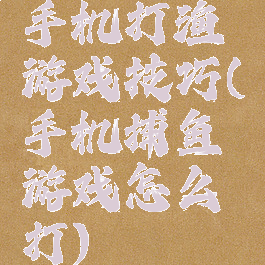 手机打渔
游戏技巧(
手机捕鱼
游戏怎么
打)